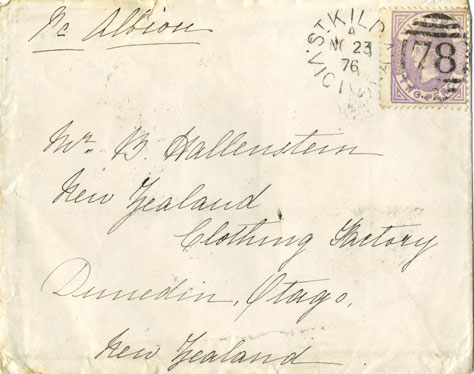 Pr Albion
ST KILDA
NO 23
76
VICTORIA
78
TWO PENCE
Mr. B. Hallenstein
New Zealand
Clothing Factory
Dunedin, Otago,
New Zealand